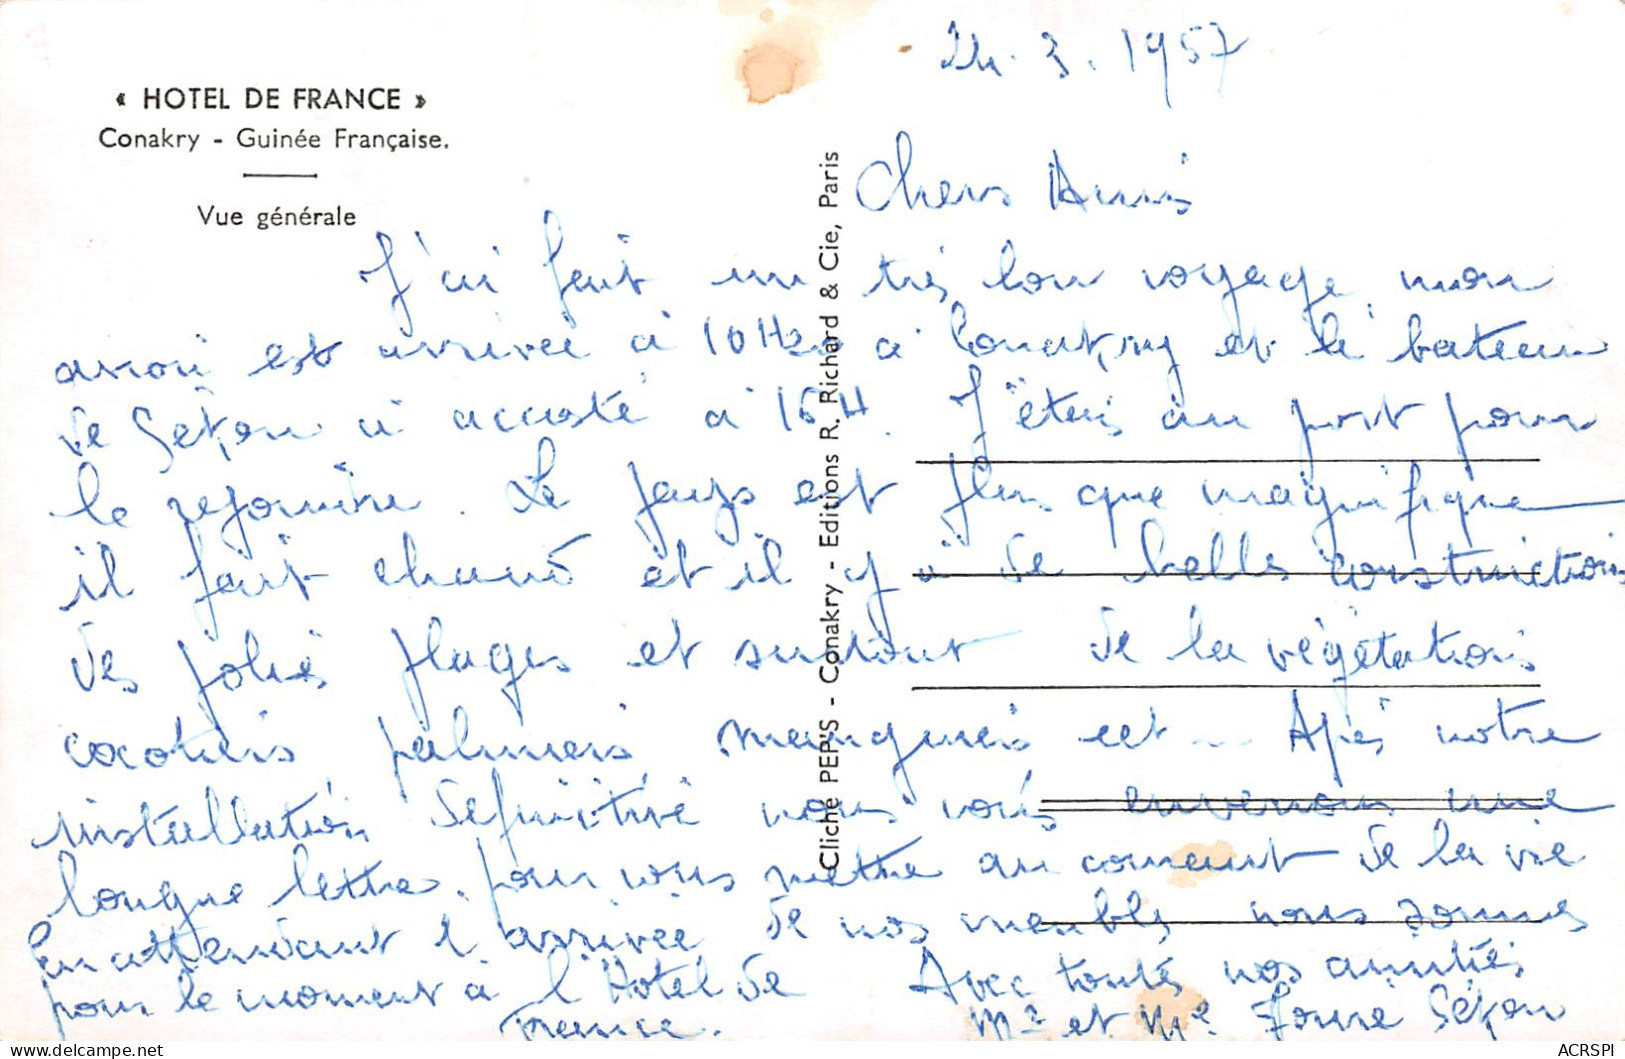 « HOTEL DE FRANCE »
Conakry - Guinée Française.
Vue générale
Cliché PEP'S - Conakry - Editions R. Richard & Cie, Paris
24.3.1957
Chers Amis
J'ai fait un très bon voyage, mon
avion est arrivée à 10H20 à Conakry et le bateau
de Sékou a accosté à 16H. J'étais au port pour
le rejoindre. Le pays est plus que magnifique
il fait chaud et il y a de belles constructions
des jolies plages et surtout de la végétations
cocotiers palmiers manguiers ect... Après notre
installation définitive nous vous enverrons une
longue lettre. pour vous mettre au courant de la vie
En attendant l'arrivée de nos meubles nous sommes
pour le moment à l'Hotel de
France.
Avec toutes nos amitiés
Mr et Me Sékou
ACRSPI